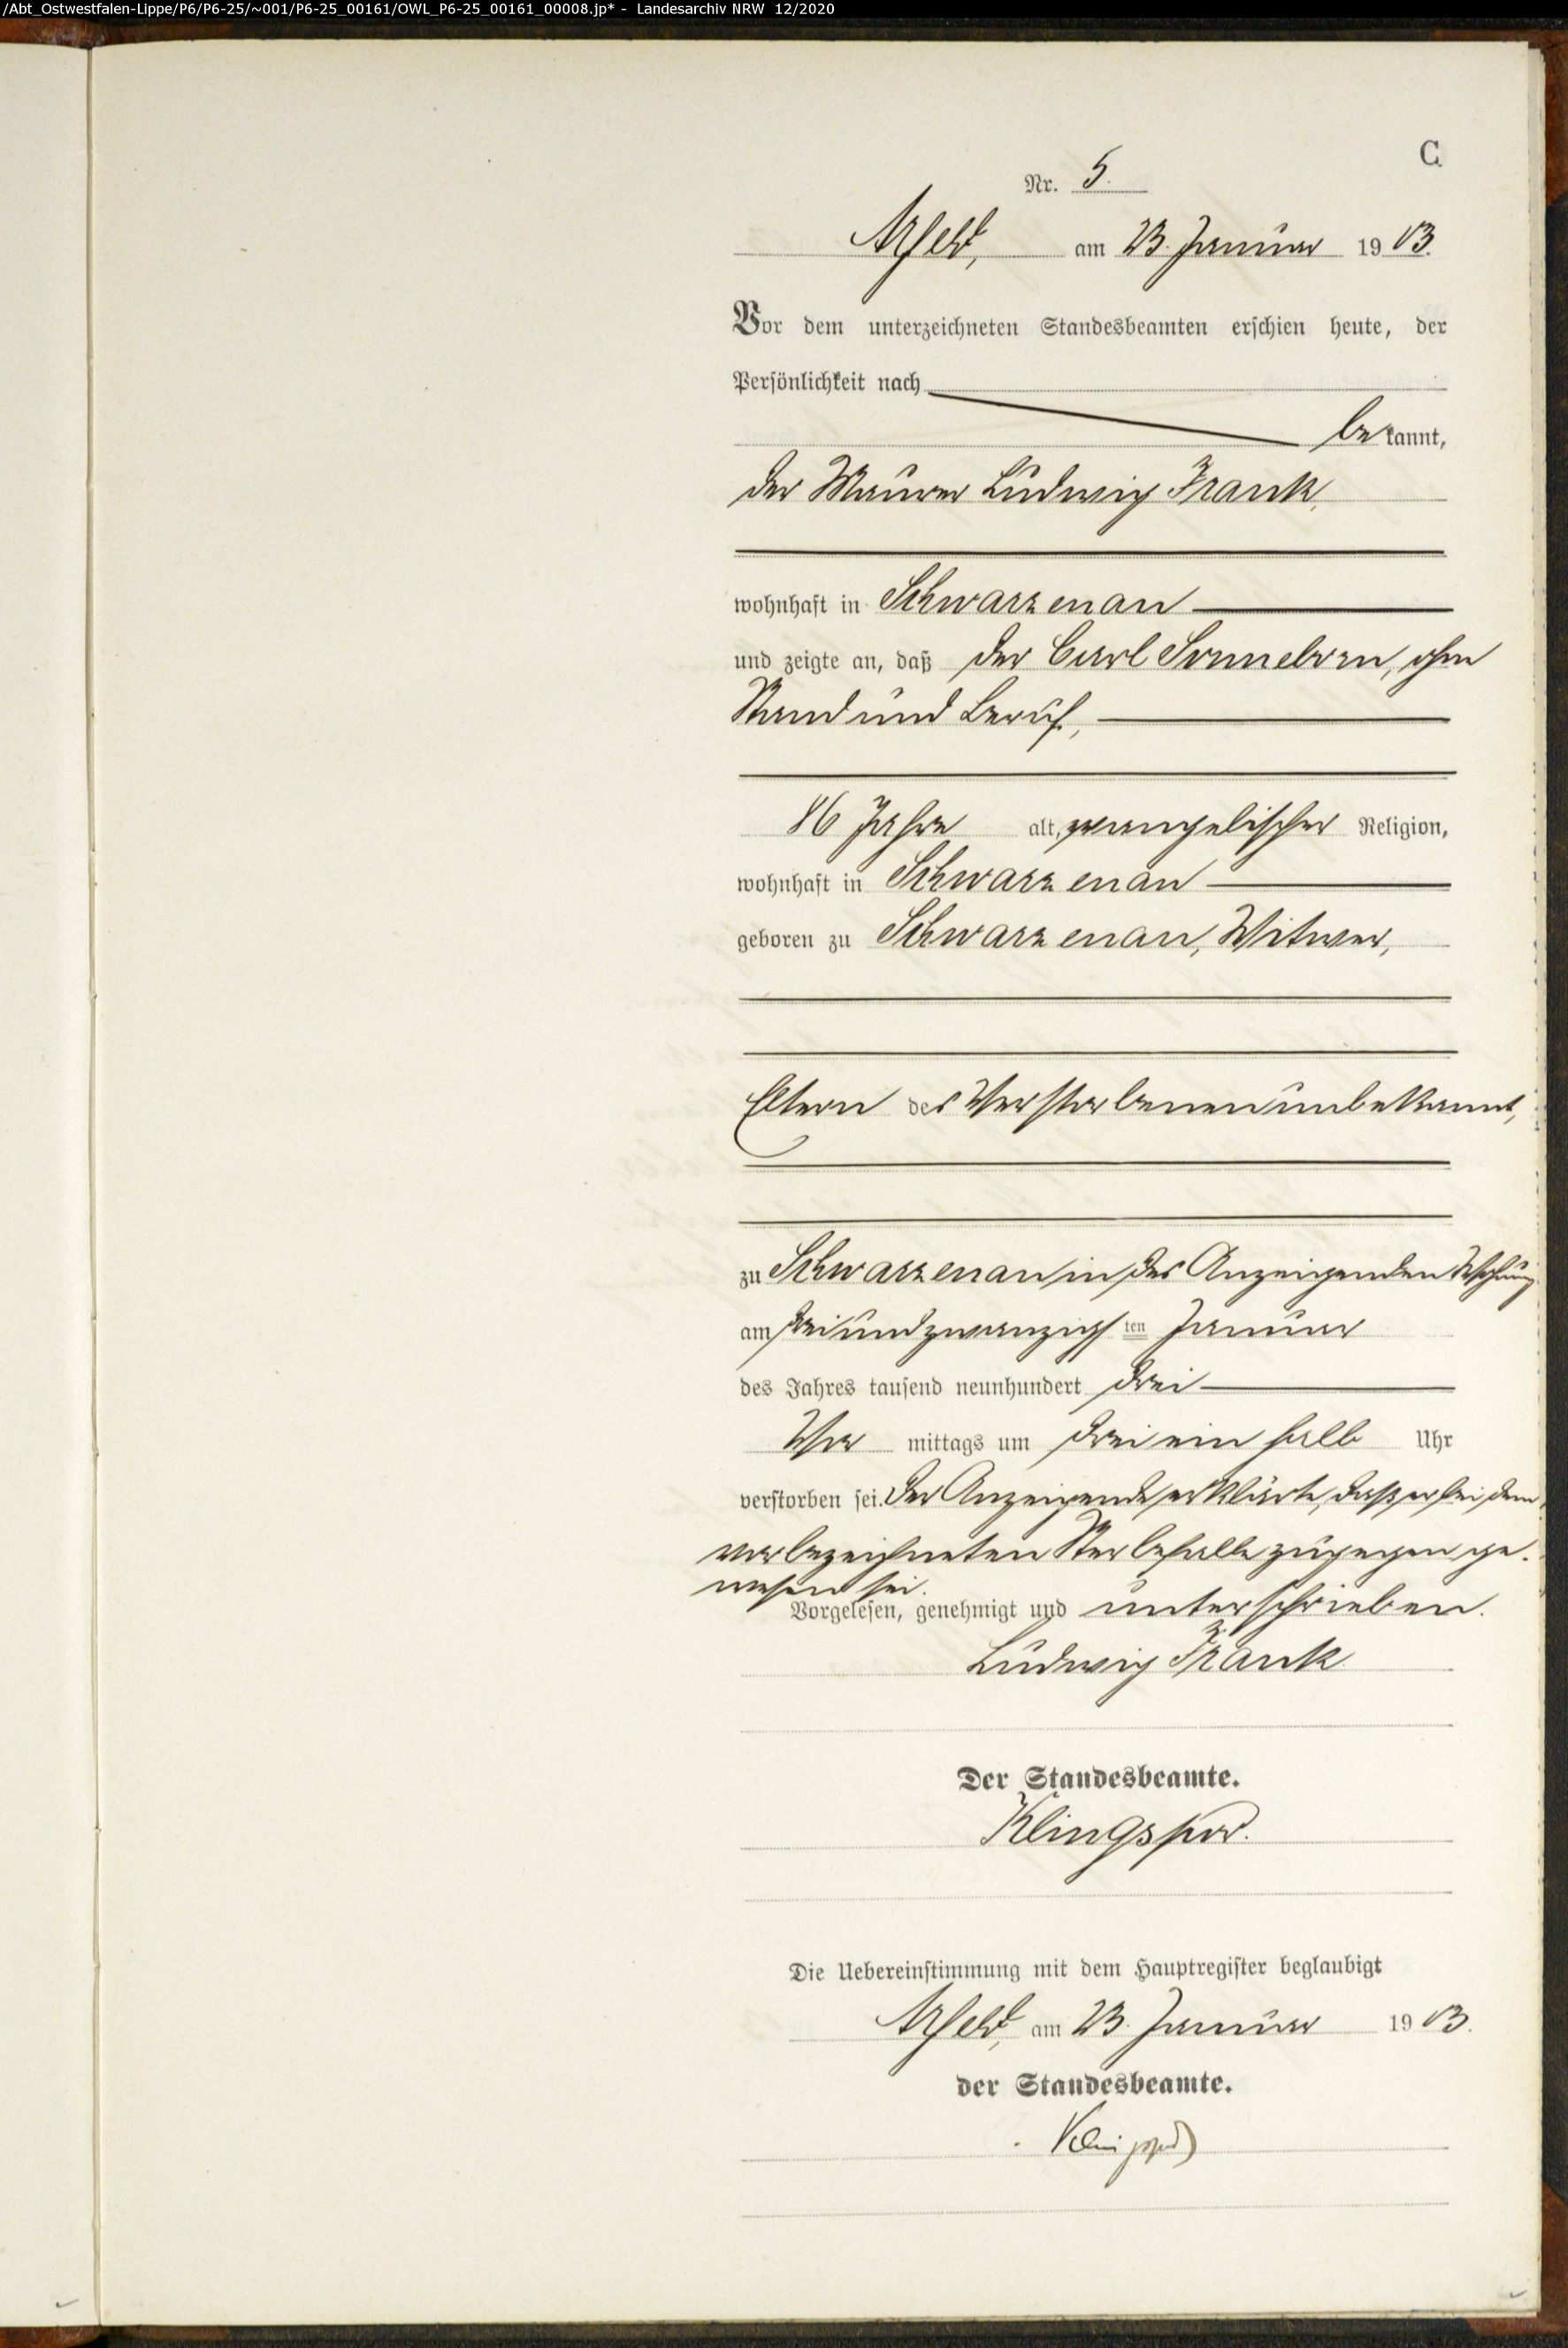 /Abt_Ostwestfalen-Lippe/P6/P6-25/~001/P6-25_00161/OWL_P6-25_00161_00008.jp* - Landesarchiv NRW 12/2020
C.
Nr. 5.
Arfeld, am 23. Januar 1903.
Vor dem unterzeichneten Standesbeamten erschien heute, der
Persönlichkeit nach
bekannt,
der Maurer Ludwig Frank,
wohnhaft in Schwarzenau
und zeigte an, daß der Carl Sonneborn, ohne
Stand und Beruf,
86 Jahre alt, evangelischer Religion,
wohnhaft in Schwarzenau
geboren zu Schwarzenau, Witwer,
Eltern des Verstorbenen unbekannt,
zu Schwarzenau in des Anzeigenden Wohnung
am dreiundzwanzigsten Januar
des Jahres tausend neunhundert drei
Vor mittags um drei ein halb Uhr
verstorben sei. Der Anzeigende erklärte, daß er bei dem
vorbezeichneten Sterbefalle zugegen ge-
wesen sei.
Vorgelesen, genehmigt und unterschrieben.
Ludwig Frank
Der Standesbeamte.
Klingspor.
Die Uebereinstimmung mit dem Hauptregister beglaubigt
Arfeld, am 23. Januar 1903.
der Standesbeamte.
Klingspor